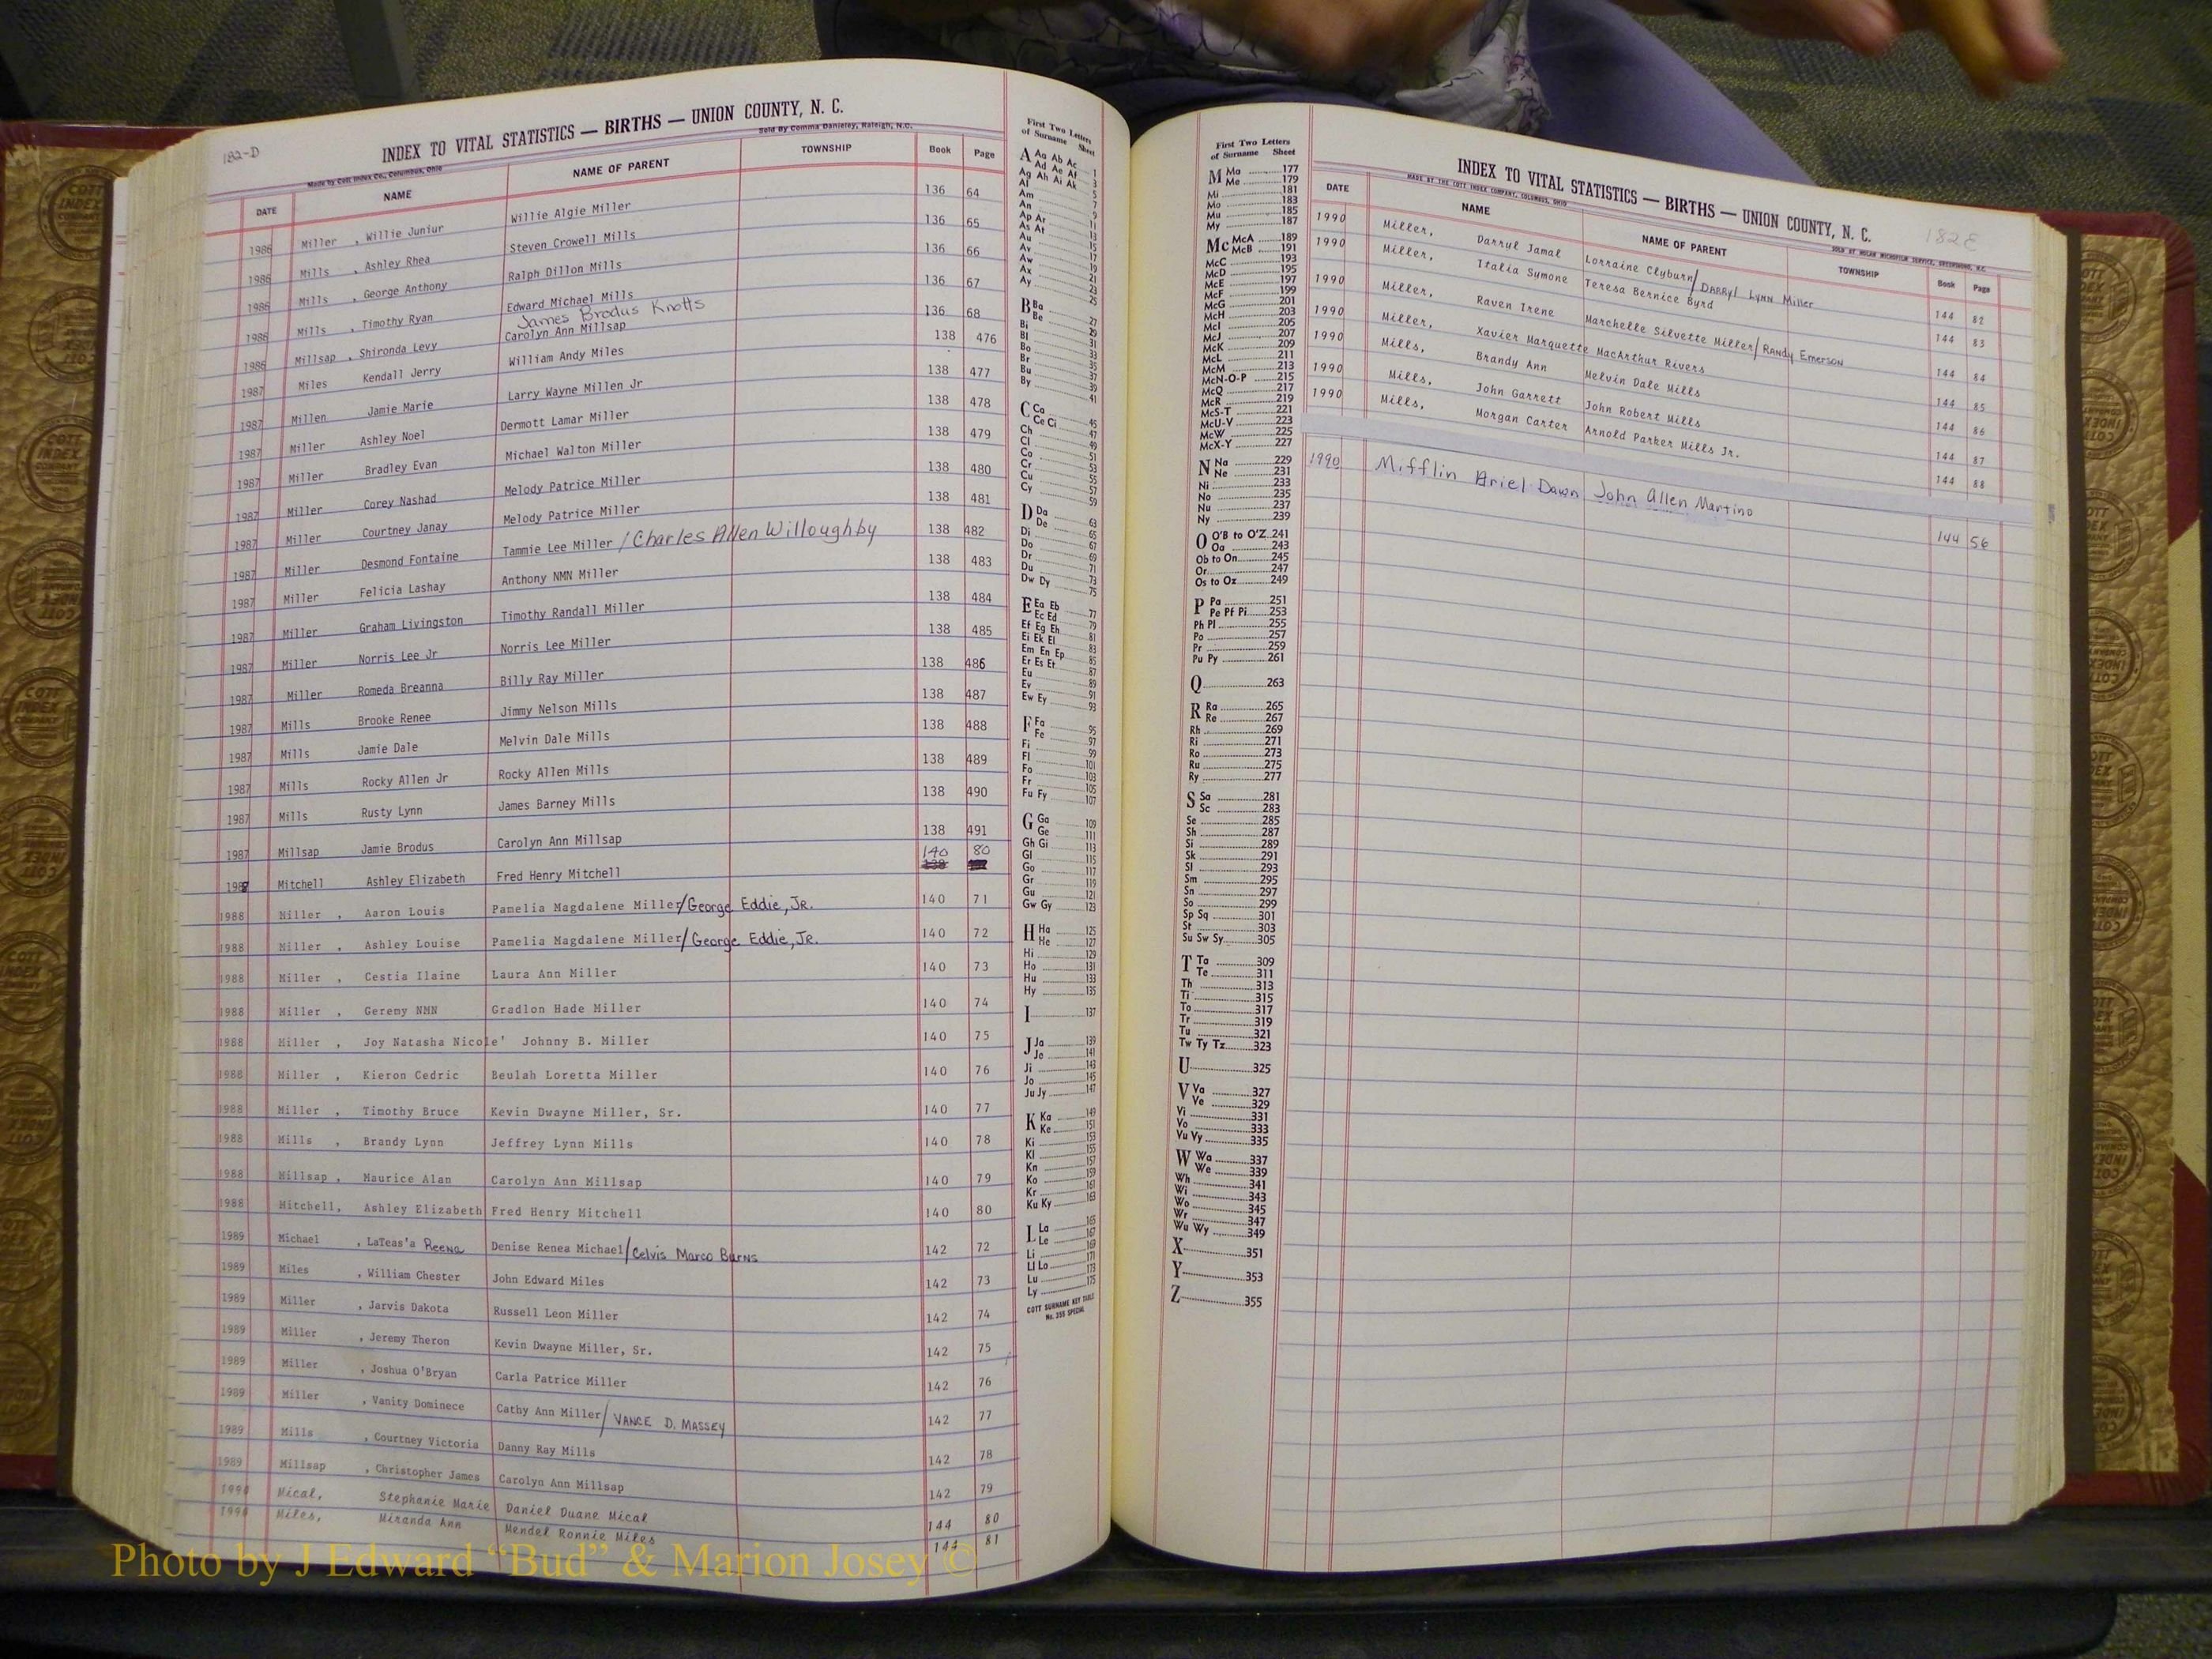 182-D
INDEX TO VITAL STATISTICS — BIRTHS — UNION COUNTY, N. C.
Made by Cott Index Co., Columbus, Ohio
Sold By Comma Danieley, Raleigh, N.C.
DATE NAME NAME OF PARENT TOWNSHIP Book Page
1986 Miller , Willie Juniur Willie Algie Miller 136 64
1986 Mills , Ashley Rhea Steven Crowell Mills 136 65
1986 Mills , George Anthony Ralph Dillon Mills 136 66
1986 Mills , Timothy Ryan Edward Michael Mills 136 67
James Brodus Knotts
1986 Millsap , Shironda Levy Carolyn Ann Millsap 136 68
1987 Miles Kendall Jerry William Andy Miles 138 476
1987 Millen Jamie Marie Larry Wayne Millen Jr 138 477
1987 Miller Ashley Noel Dermott Lamar Miller 138 478
1987 Miller Bradley Evan Michael Walton Miller 138 479
1987 Miller Corey Nashad Melody Patrice Miller 138 480
1987 Miller Courtney Janay Melody Patrice Miller 138 481
1987 Miller Desmond Fontaine Tammie Lee Miller / Charles Allen Willoughby 138 482
1987 Miller Felicia Lashay Anthony NMN Miller 138 483
1987 Miller Graham Livingston Timothy Randall Miller 138 484
1987 Miller Norris Lee Jr Norris Lee Miller 138 485
1987 Miller Romeda Breanna Billy Ray Miller 138 486
1987 Mills Brooke Renee Jimmy Nelson Mills 138 487
1987 Mills Jamie Dale Melvin Dale Mills 138 488
1987 Mills Rocky Allen Jr Rocky Allen Mills 138 489
1987 Mills Rusty Lynn James Barney Mills 138 490
1987 Millsap Jamie Brodus Carolyn Ann Millsap 138 491
140 80
1988 Mitchell Ashley Elizabeth Fred Henry Mitchell 138
1988 Miller , Aaron Louis Pamelia Magdalene Miller/George Eddie, JR. 140 71
1988 Miller , Ashley Louise Pamelia Magdalene Miller/George Eddie, JR. 140 72
1988 Miller , Cestia Ilaine Laura Ann Miller 140 73
1988 Miller , Geremy NMN Gradlon Hade Miller 140 74
1988 Miller , Joy Natasha Nicole' Johnny B. Miller 140 75
1988 Miller , Kieron Cedric Beulah Loretta Miller 140 76
1988 Miller , Timothy Bruce Kevin Dwayne Miller, Sr. 140 77
1988 Mills , Brandy Lynn Jeffrey Lynn Mills 140 78
1988 Millsap , Maurice Alan Carolyn Ann Millsap 140 79
1988 Mitchell, Ashley Elizabeth Fred Henry Mitchell 140 80
1989 Michael , LaTeas'a Reena Denise Renea Michael/Celvis Marco Burns 142 72
1989 Miles , William Chester John Edward Miles 142 73
1989 Miller , Jarvis Dakota Russell Leon Miller 142 74
1989 Miller , Jeremy Theron Kevin Dwayne Miller, Sr. 142 75
1989 Miller , Joshua O'Bryan Carla Patrice Miller 142 76
1989 Miller , Vanity Dominece Cathy Ann Miller/ VANCE D. MASSEY 142 77
1989 Mills , Courtney Victoria Danny Ray Mills 142 78
1989 Millsap , Christopher James Carolyn Ann Millsap 142 79
1990 Mical, Stephanie Marie Daniel Duane Mical 144 80
1990 Miles, Miranda Ann Mendel Ronnie Miles 144 81
First Two Letters
of Surname Sheet
A Aa Ab Ac 1
Ad Ae Af 3
Ag Ah Ai Ak 5
Al
Am
An 9
Ap Ar 11
As At 13
Au 15
Av 17
Aw 19
Ax 21
Ay 23
25
B Ba 27
Be 29
Bi 31
Bl 33
Bo 35
Br 37
Bu 39
By 41
C Ca 45
Ce Ci 47
Ch 49
Cl 51
Co 53
Cr 55
Cu 57
Cy 59
D Da 63
De 65
Di 67
Do 69
Dr 71
Du 73
Dw Dy 75
E Ea Eb 77
Ec Ed 79
Ef Eg Eh 81
Ei Ek El 83
Em En Ep 85
Er Es Et 87
Eu 89
Ev 91
Ew Ey 93
F Fa 95
Fe 97
Fi 99
Fl 101
Fo 103
Fr 105
Fu Fy 107
G Ga 109
Ge 111
Gh Gi 113
Gl 115
Go 117
Gr 119
Gu 121
Gw Gy 123
H Ha 125
He 127
Hi 129
Ho 131
Hu 133
Hy 135
I 137
J Ja 139
Je 141
Ji 143
Jo 145
Ju Jy 147
K Ka 149
Ke 151
Ki 153
Kl 155
Kn 157
Ko 159
Kr 161
Ku Ky 163
L La 165
Le 167
Li 169
Ll Lo 171
Lu 173
Ly 175
COTT SURNAME KEY TABLE
No. 355 SPECIAL
First Two Letters
of Surname Sheet
M Ma 177
Me 179
Mi 181
Mo 183
Mu 185
My 187
Mc McA 189
McB 191
McC 193
McD 195
McE 197
McF 199
McG 201
McH 203
McI 205
McJ 207
McK 209
McL 211
McM 213
McN-O-P 215
McQ 217
McR 219
McS-T 221
McU-V 223
McW 225
McX-Y 227
N Na 229
Ne 231
Ni 233
No 235
Nu 237
Ny 239
O O'B to O'Z 241
Oa 243
Ob to On 245
Or 247
Os to Oz 249
P Pa 251
Pe Pf Pi 253
Ph Pl 255
Po 257
Pr 259
Pu Py 261
Q 263
R Ra 265
Re 267
Rh 269
Ri 271
Ro 273
Ru 275
Ry 277
S Sa 281
Sc 283
Se 285
Sh 287
Si 289
Sk 291
Sl 293
Sm 295
Sn 297
So 299
Sp Sq 301
St 303
Su Sw Sy 305
T Ta 309
Te 311
Th 313
Ti 315
To 317
Tr 319
Tu 321
Tw Ty Tz 323
U 325
V Va 327
Ve 329
Vi 331
Vo 333
Vu Vy 335
W Wa 337
We 339
Wh 341
Wi 343
Wo 345
Wr 347
Wu Wy 349
X 351
Y 353
Z 355
INDEX TO VITAL STATISTICS — BIRTHS — UNION COUNTY, N. C.
182E
MADE BY THE COTT INDEX COMPANY, COLUMBUS, OHIO
SOLD BY MICROFILM SERVICE, GREENSBORO, N.C.
DATE NAME NAME OF PARENT TOWNSHIP Book Page
1990 Miller, Darryl Jamal Lorraine Clyburn/DARRYl LYNN Miller 144 82
1990 Miller, Italia Symone Teresa Bernice Byrd 144 83
1990 Miller, Raven Irene Marchelle Silvette Miller/RANDY EMERSON 144 84
1990 Miller, Xavier Marquette MacArthur Rivers 144 85
1990 Mills, Brandy Ann Melvin Dale Mills 144 86
1990 Mills, John Garrett John Robert Mills 144 87
1990 Mills, Morgan Carter Arnold Parker Mills Jr. 144 88
1990 Mifflin Ariel Dawn John Allen Martino 144 56
Photo by J Edward “Bud” & Marion Josey ©